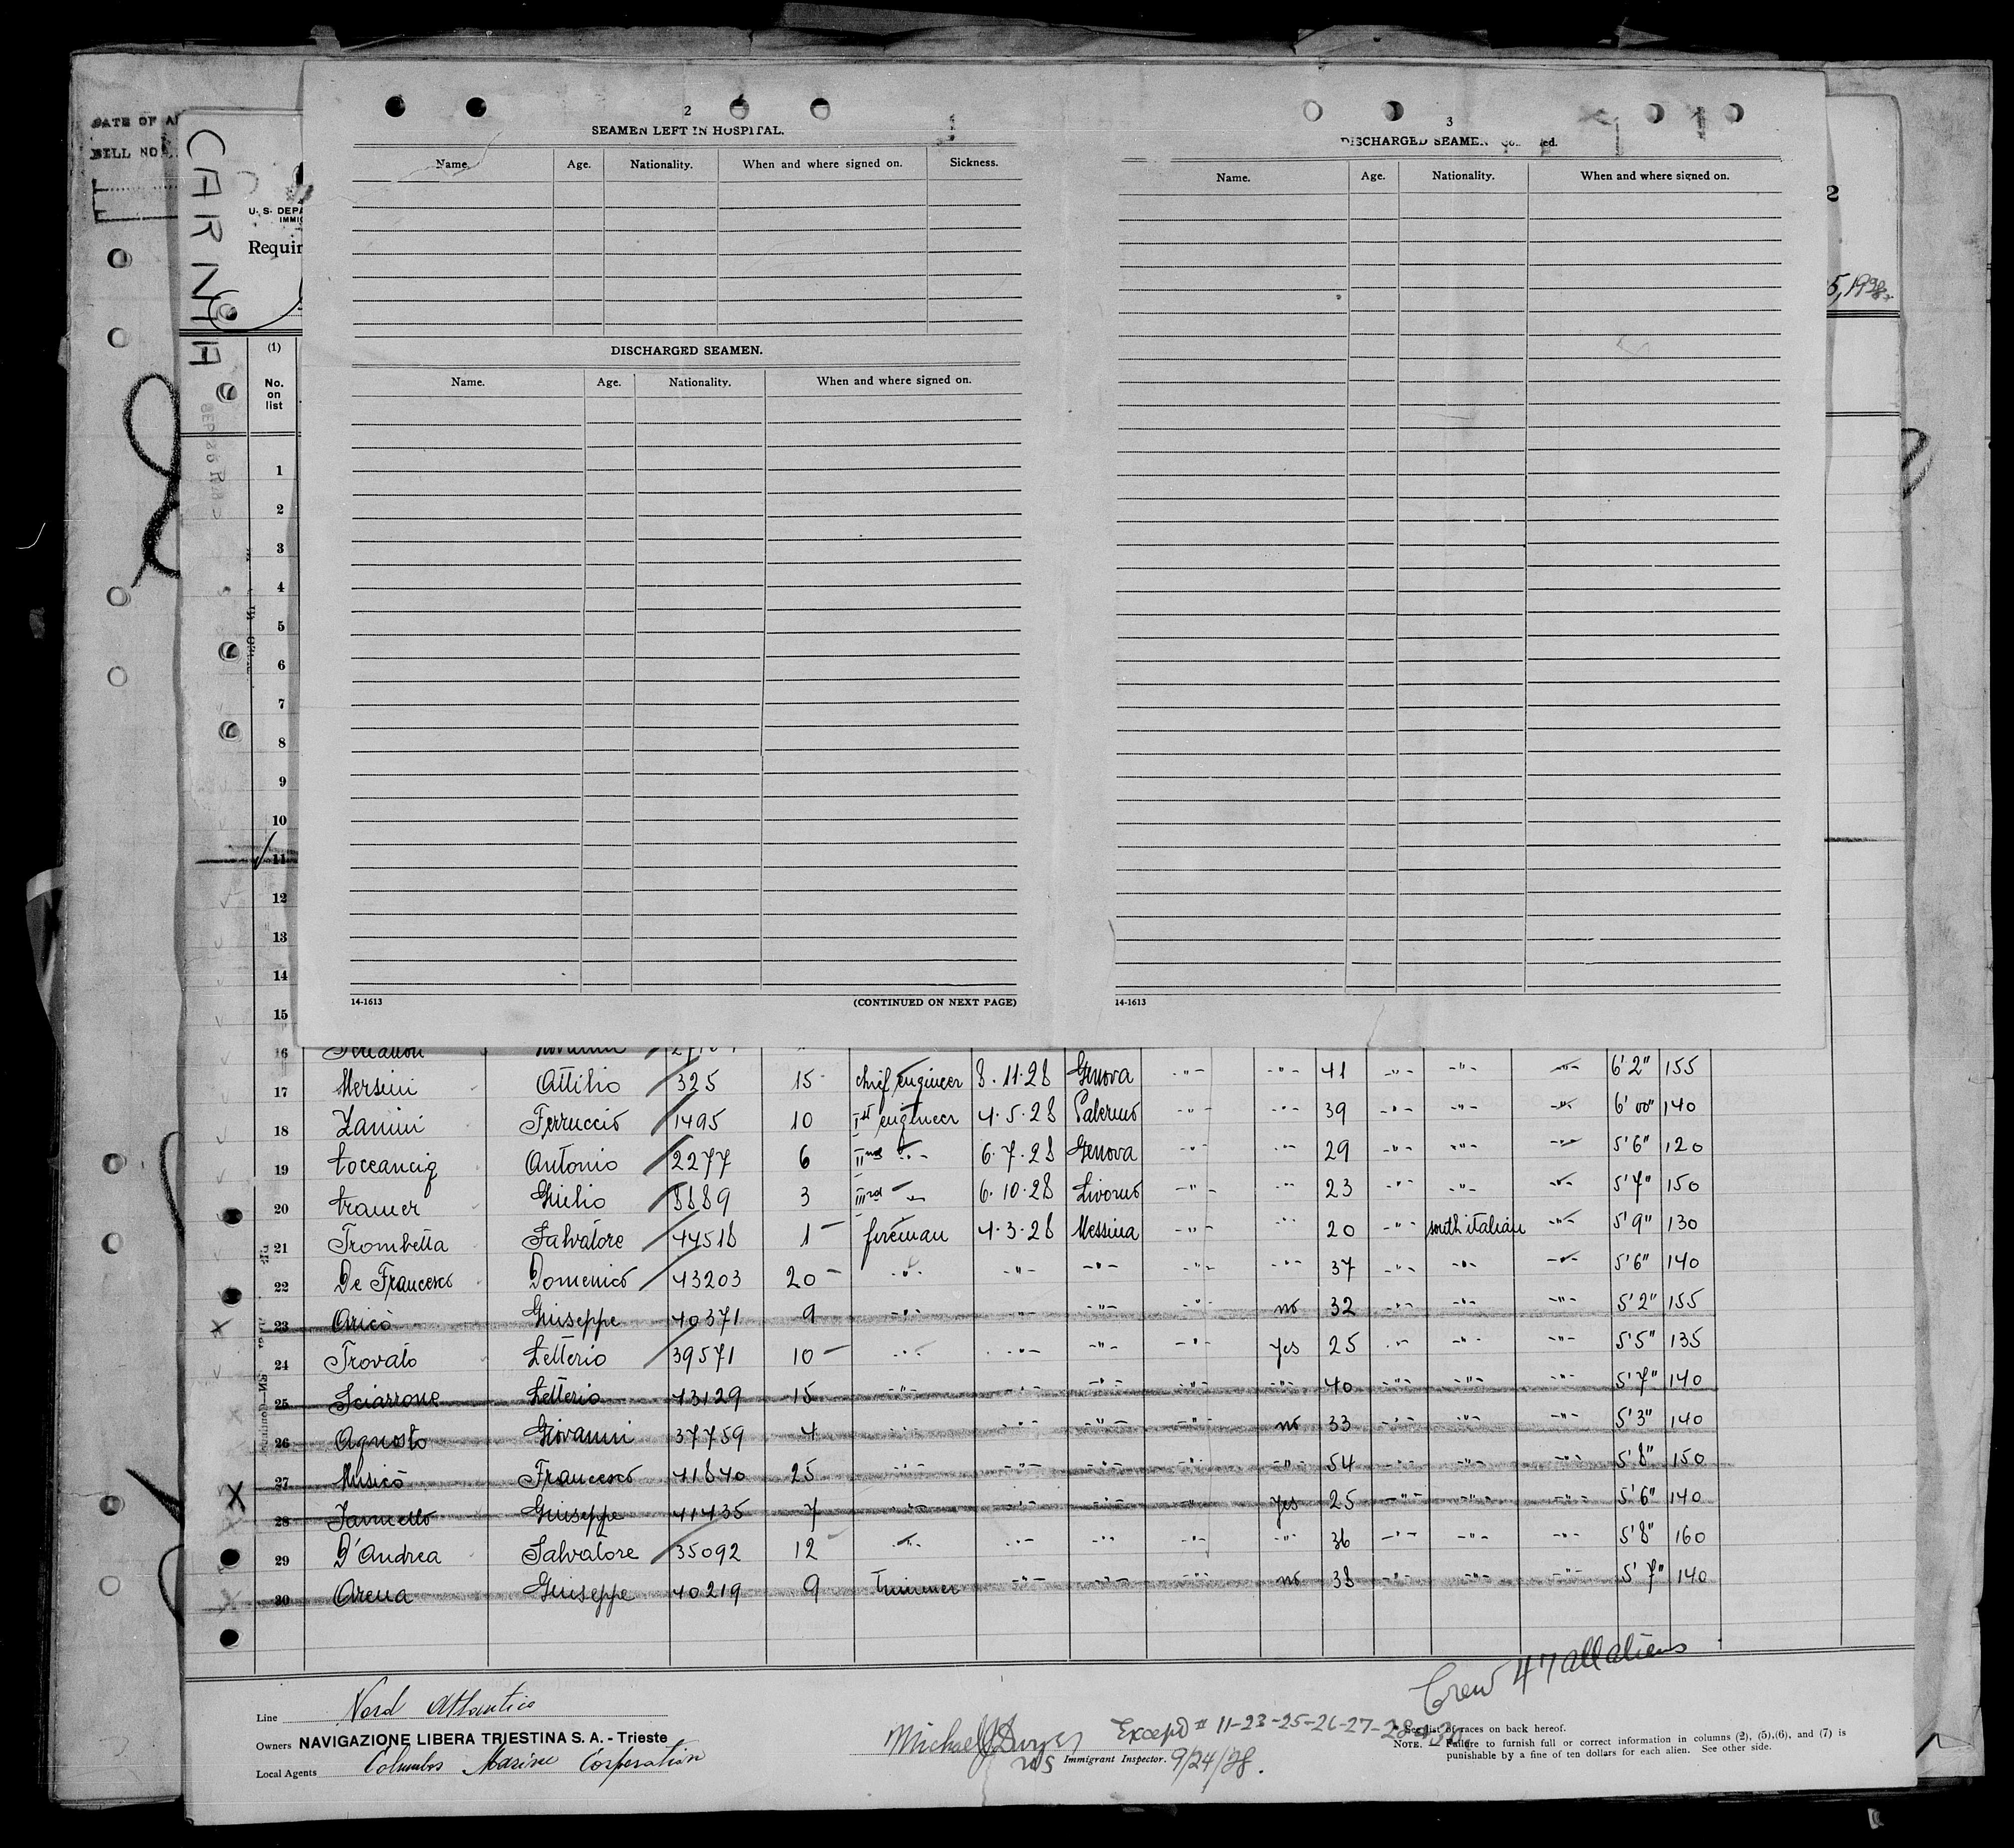 DATE OF A
BILL NO.
CARNIA
U. S. DEPA
IMMIG
Requir
2
5, 1928
(1)
No.
on
list
2
SEAMEN LEFT IN HOSPITAL.
Name. Age. Nationality. When and where signed on. Sickness.
DISCHARGED SEAMEN.
Name. Age. Nationality. When and where signed on.
14-1613 (CONTINUED ON NEXT PAGE)
3
DISCHARGED SEAMEN
Name. Age. Nationality. When and where signed on.
14-1613
1
2
3
4
5
6
7
8
9
10
11
12
13
14
15
16
17 Mersini Attilio 325 15 chief engineer 8.11.28 Genova -"- -"- 41 -"- -"- -"- 6'2" 155
18 Zanini Ferruccio 1495 10 Ist engineer 4.5.28 Palermo -"- -"- 39 -"- -"- -"- 6'00" 140
19 Coceancig Antonio 2277 6 IInd -"- 6.7.28 Genova -"- -"- 29 -"- -"- -"- 5'6" 120
20 Cramer Giulio 8889 3 IIIrd -"- 6.10.28 Livorno -"- -"- 23 -"- -"- -"- 5'7" 150
21 Trombetta Salvatore 44518 1 fireman 4.3.28 Messina -"- -"- 20 -"- south italian -"- 5'9" 130
22 De Francesco Domenico 43203 20 -"- -"- -"- -"- -"- 37 -"- -"- -"- 5'6" 140
23 Aricò Giuseppe 40371 9 -"- -"- -"- -"- no 32 -"- -"- -"- 5'2" 155
24 Trovato Letterio 39571 10 -"- -"- -"- -"- yes 25 -"- -"- -"- 5'5" 135
25 Sciarrone Letterio 43129 15 -"- -"- -"- -"- -"- 40 -"- -"- -"- 5'7" 140
26 Agnosto Giovanni 37759 4 -"- -"- -"- -"- no 33 -"- -"- -"- 5'3" 140
27 Musicò Francesco 41840 25 -"- -"- -"- -"- -"- 54 -"- -"- -"- 5'8" 150
28 Iannello Giuseppe 41435 7 -"- -"- -"- -"- yes 25 -"- -"- -"- 5'6" 140
29 D'Andrea Salvatore 35092 12 -"- -"- -"- -"- -"- 36 -"- -"- -"- 5'8" 160
30 Arena Giuseppe 40219 9 trimmer -"- -"- -"- no 38 -"- -"- -"- 5'7" 140
Crew 47 all aliens
Line Nord Atlantico
Owners NAVIGAZIONE LIBERA TRIESTINA S. A. - Trieste
Local Agents Columbus Marine Corporation
Michael J Dwyer Except # 11-23-25-26-27-28-30
Immigrant Inspector. 9/24/28.
* See list of races on back hereof.
NOTE. Failure to furnish full or correct information in columns (2), (5), (6), and (7) is
punishable by a fine of ten dollars for each alien. See other side.